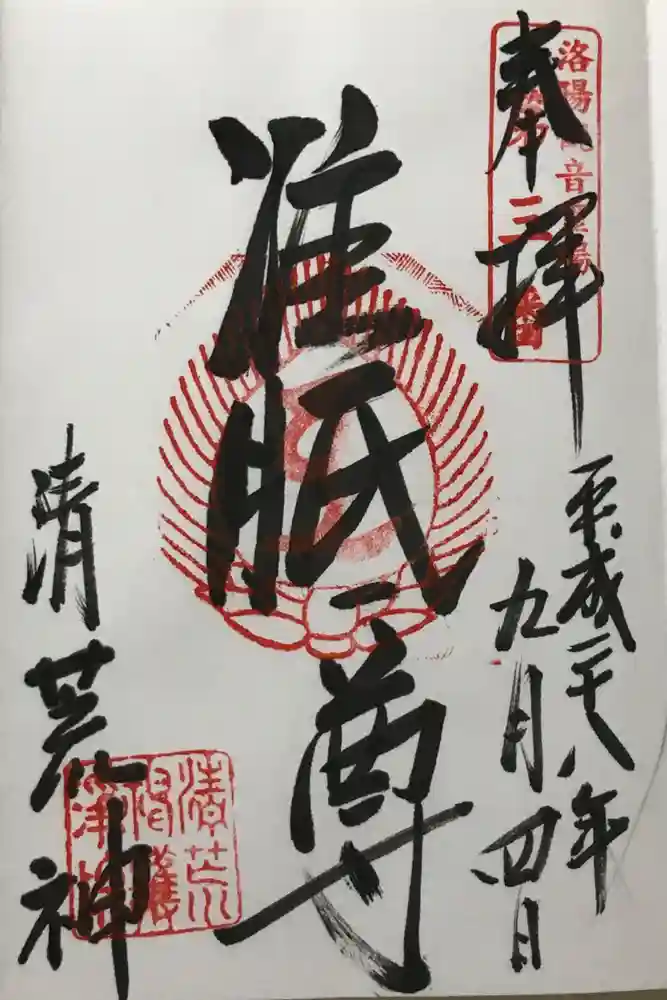 奉拝
洛陽観音霊場
三番
平成二十八年
九月四日
准胝尊
清荒神
清荒
神護
淨院